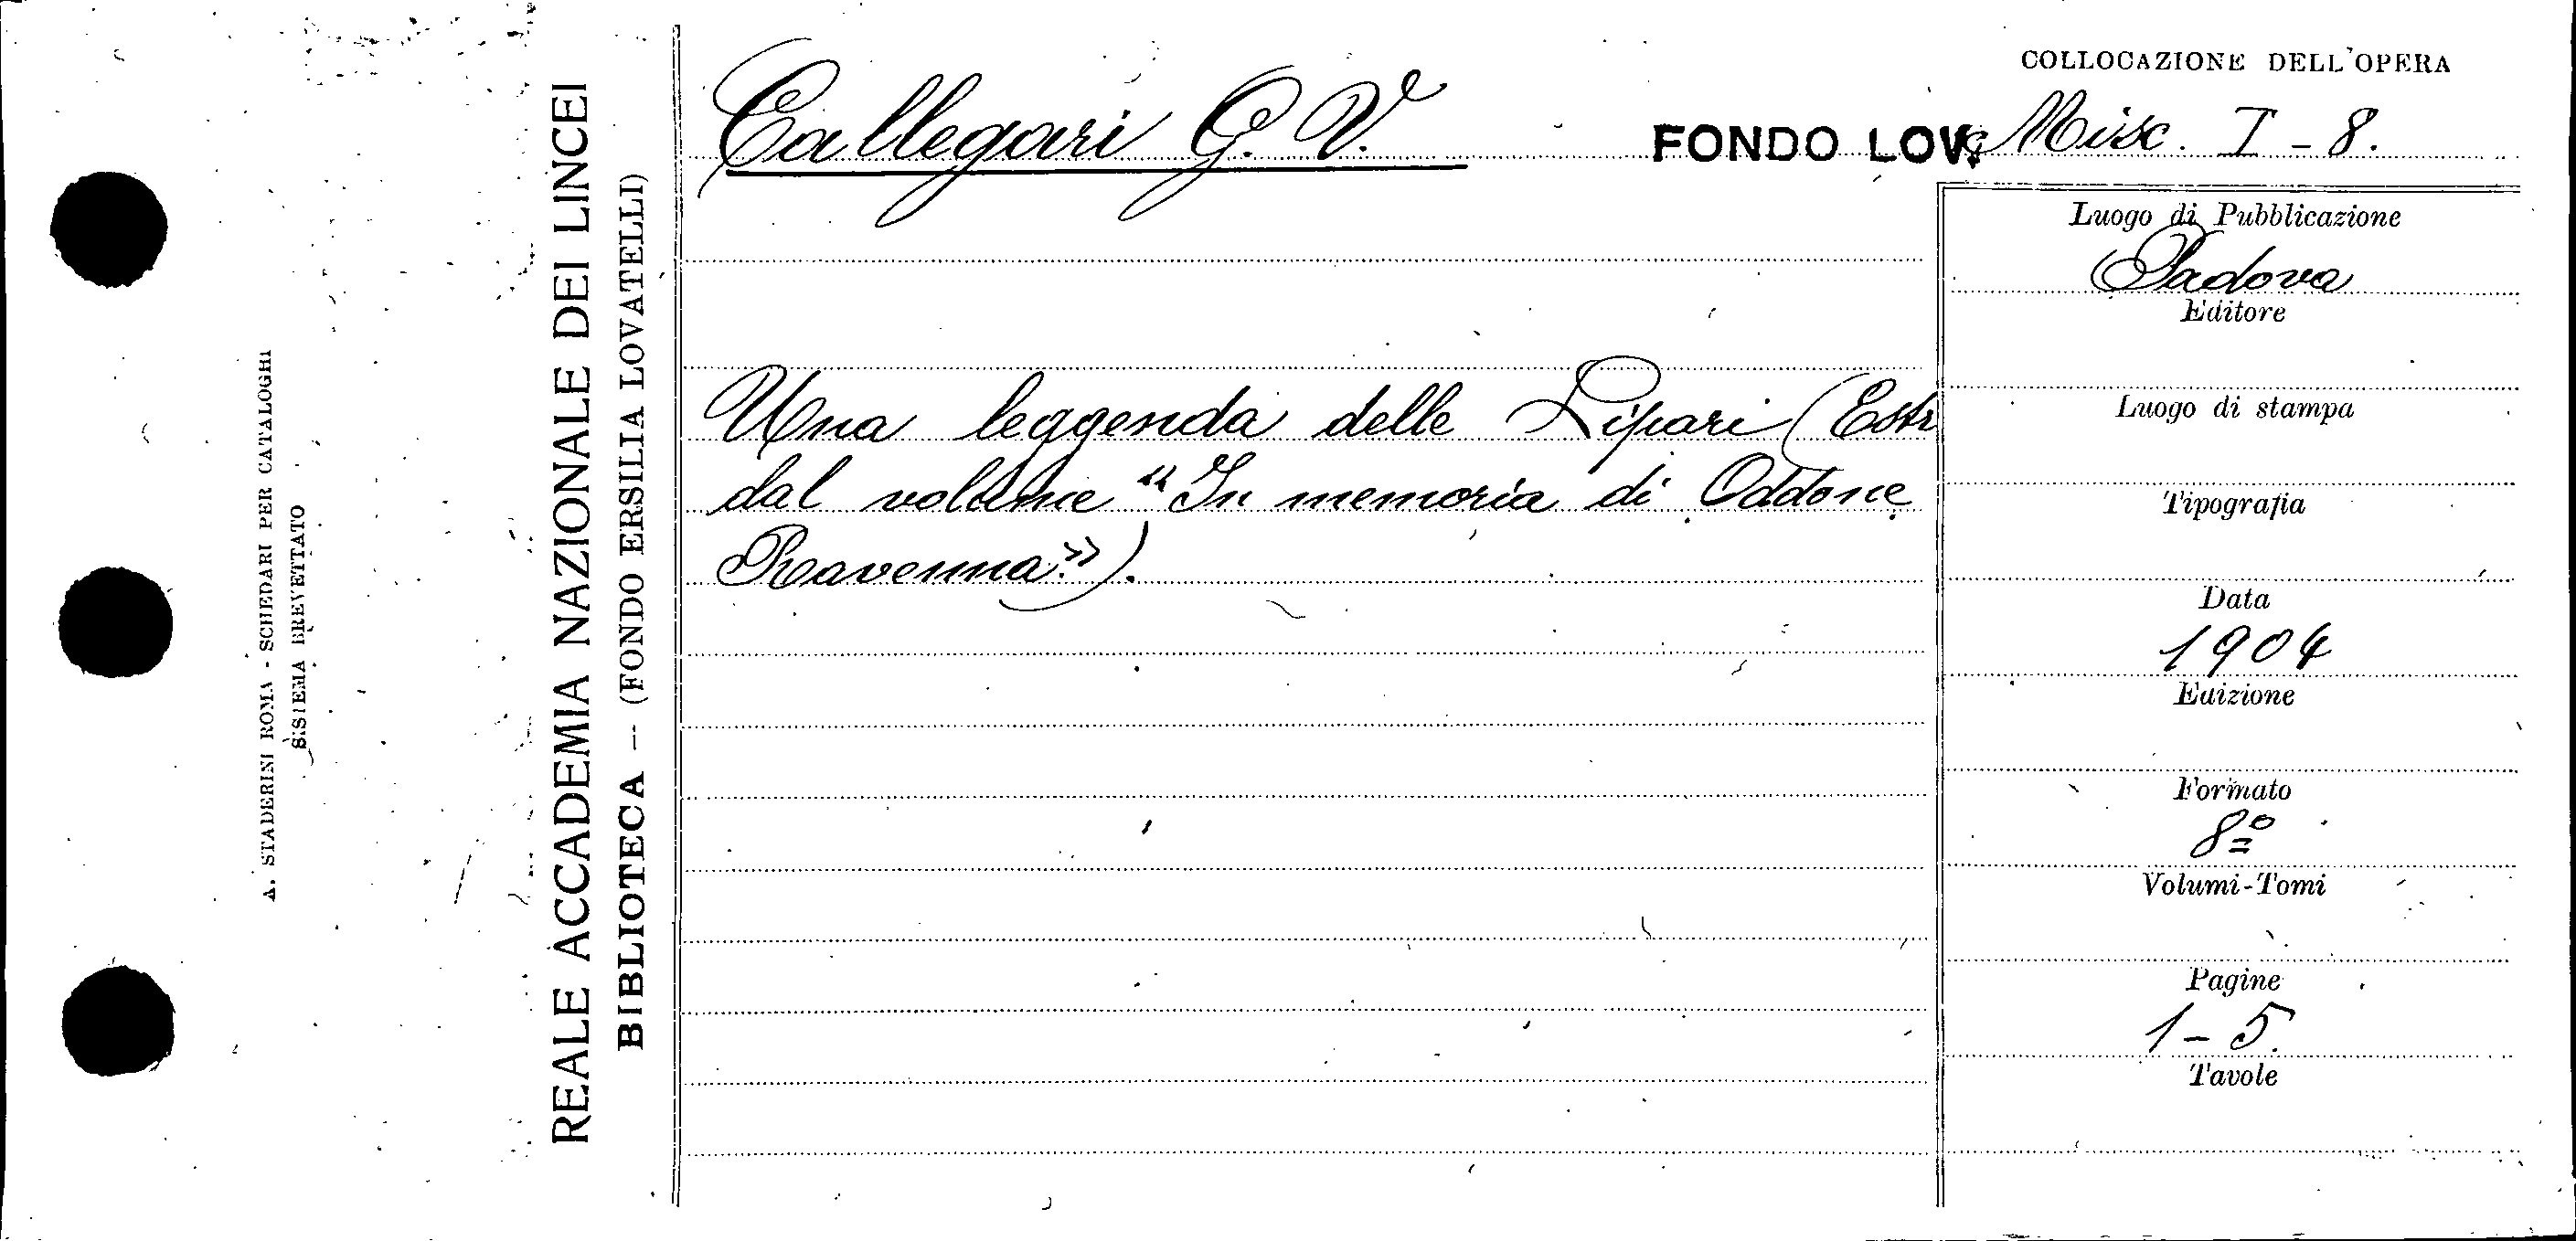 A. STADERINI ROMA - SCHEDARI PER CATALOGHI
SISTEMA BREVETTATO
REALE ACCADEMIA NAZIONALE DEI LINCEI
BIBLIOTECA — (FONDO ERSILIA LOVATELLI)
Callegari G. V.
FONDO LOV.
COLLOCAZIONE DELL'OPERA
Misc. I - 8.
Una leggenda delle Lipari (Estr
dal volume "In memoria di Oddone
Ravenna»).
Luogo di Pubblicazione
Padova
Editore
Luogo di stampa
Tipografia
Data
1904
Edizione
Formato
8º
Volumi-Tomi
Pagine
1-5.
Tavole